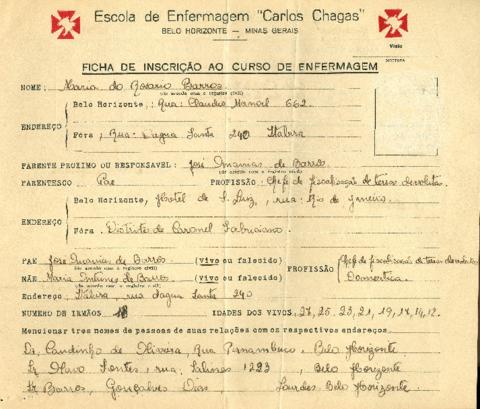 Escola de Enfermagem "Carlos Chagas"
BELO HORIZONTE — MINAS GERAIS
Visto
DIRETORA
FICHA DE INSCRIÇÃO AO CURSO DE ENFERMAGEM
NOME: Maria do Rosario Barros
(de acordo com o registro civil)
Belo Horizonte, : Rua: Claudio Manoel 662.
ENDEREÇO
Fóra, Rua: d'agua Santa 240 Itabira
PARENTE PROXIMO OU RESPONSAVEL: José Ananias de Barros
(de acordo com o registro civil)
PARENTESCO Pae PROFISSÃO: Chefe de fiscalisação de terras devolutas.
Belo Horizonte, Hotel de S. Luiz, rua: Rio de Janeiro.
ENDEREÇO
Fóra. Distrito de Coronel Fabriciano
PAE José Ananias de Barros (vivo ou falecido)
(de acordo com o registro civil)
PROFISSÃO Chefe de fiscalisação de terras devolutas
MÃE Maria Antunes de Barros (Viva ou falecida) Domestica.
(de acordo com o registro civil)
Endereço: Itabira, rua d'agua Santa 240
NUMERO DE IRMÃOS 8 IDADES DOS VIVOS, 27, 25, 23, 21, 19, 17, 14, 12.
Mencionar tres nomes de pessoas de suas relações com os respectivos endereços.
Dr. Candinho de Oliveira, Rua Pernambuco, Belo Horizonte
Sr Olavo Fontes, rua: Salinas 1223, Belo Horizonte
Sr Barros, Gonçalves Dias, Lourdes Belo Horizonte.